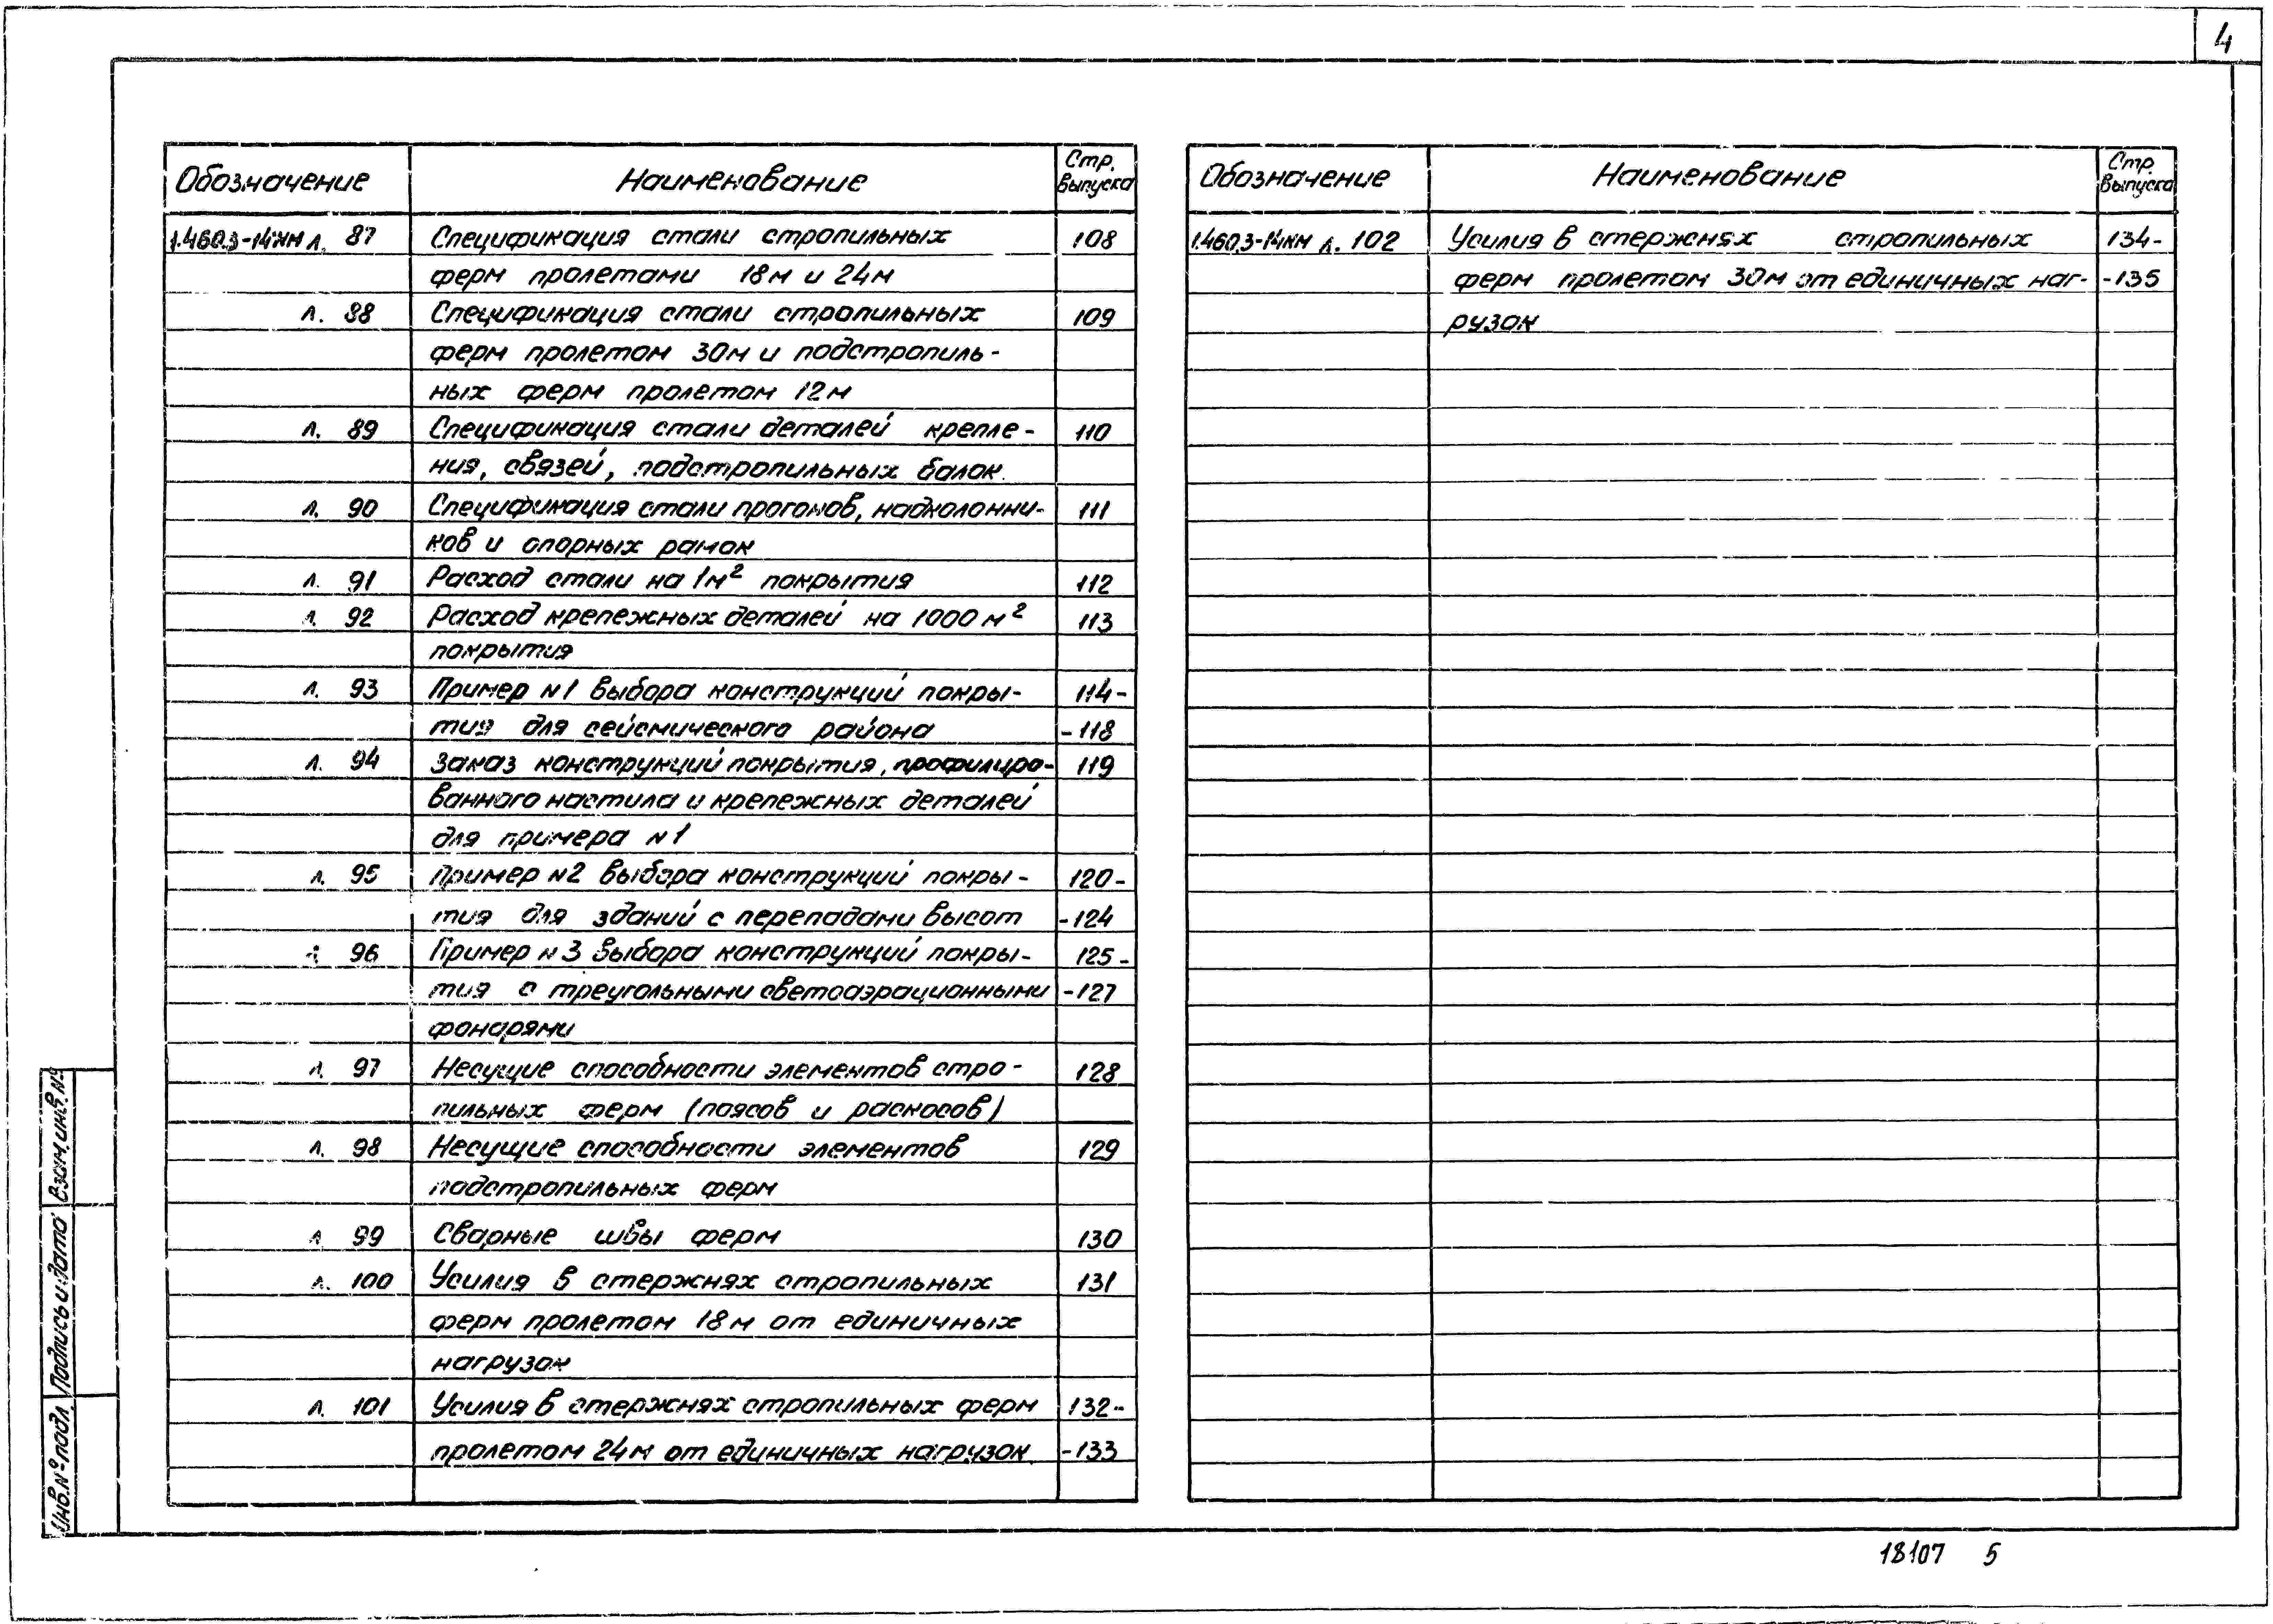 4
Обозначение Наименование Стр. выпуска
1.460.3-14КМ л. 87 Спецификация стали стропильных 108
ферм пролетами 18м и 24м
л. 88 Спецификация стали стропильных 109
ферм пролетом 30м и подстропиль-
ных ферм пролетом 12м
л. 89 Спецификация стали деталей крепле- 110
ния, связей, подстропильных балок
л. 90 Спецификация стали прогонов, надколонни- 111
ков и опорных рамок
л. 91 Расход стали на 1м² покрытия 112
л. 92 Расход крепежных деталей на 1000 м² 113
покрытия
л. 93 Пример N1 выбора конструкций покры- 114-
тия для сейсмического района -118
л. 94 Заказ конструкций покрытия, профилиро- 119
ванного настила и крепежных деталей
для примера N1
л. 95 Пример N2 выбора конструкций покры- 120-
тия для зданий с перепадами высот -124
л. 96 Пример N3 выбора конструкций покры- 125-
тия с треугольными светоаэрационными -127
фонарями
л. 97 Несущие способности элементов стро- 128
пильных ферм (поясов и раскосов)
л. 98 Несущие способности элементов 129
подстропильных ферм
л. 99 Сварные швы ферм 130
л. 100 Усилия в стержнях стропильных 131
ферм пролетом 18м от единичных
нагрузок
л. 101 Усилия в стержнях стропильных ферм 132-
пролетом 24м от единичных нагрузок -133
Обозначение Наименование Стр. выпуска
1.460.3-14КМ л. 102 Усилия в стержнях стропильных 134-
ферм пролетом 30м от единичных наг- -135
рузок
Взам. инв. №
Подпись и дата
Инв. № подл.
18107 5